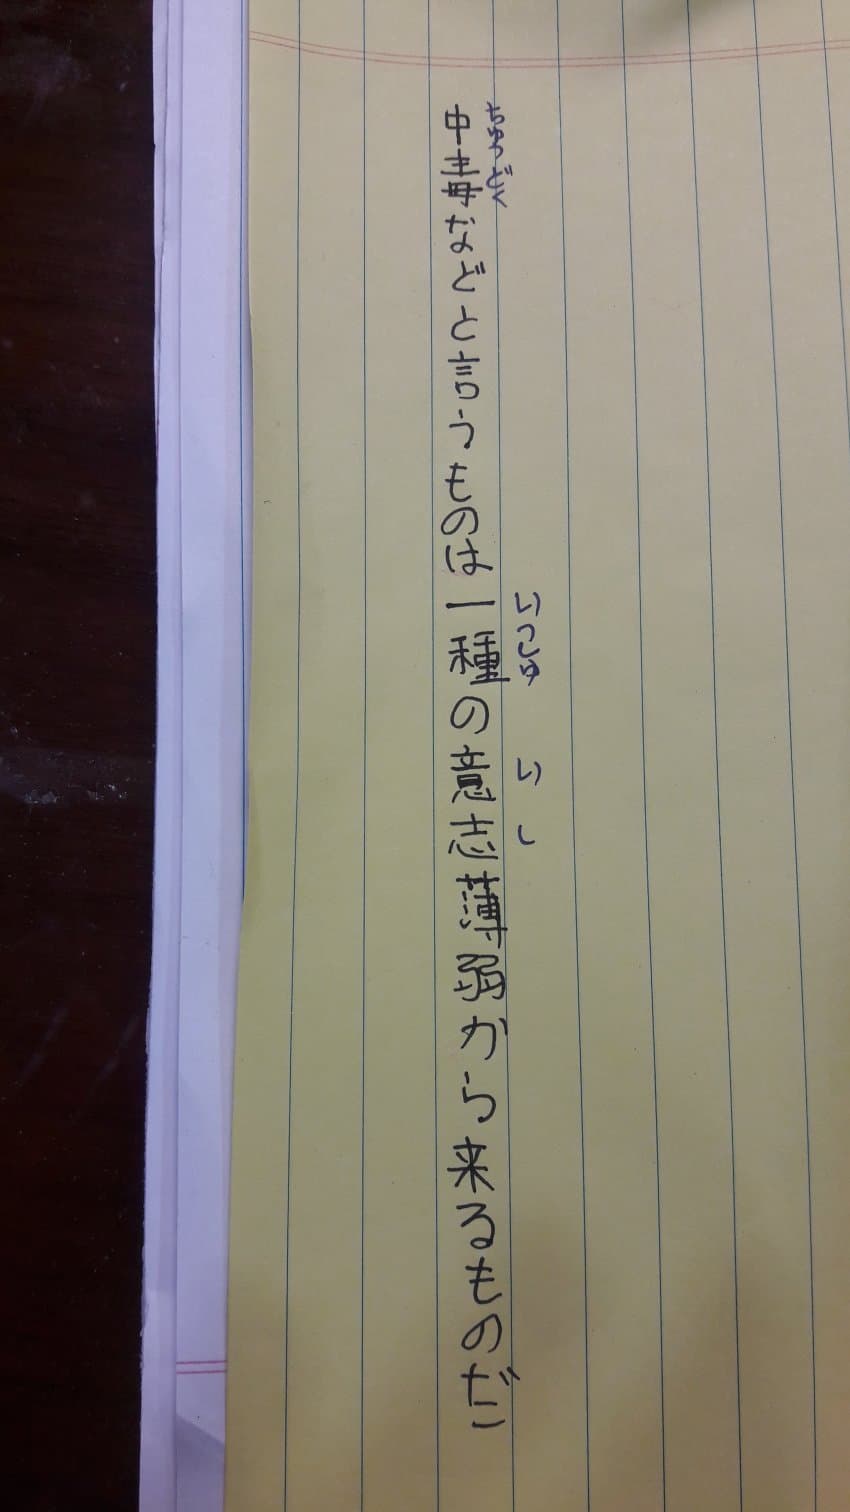 中毒などと言うものは一種の意志薄弱から来るものだ
ちゅうどく
いっしゅ
いし